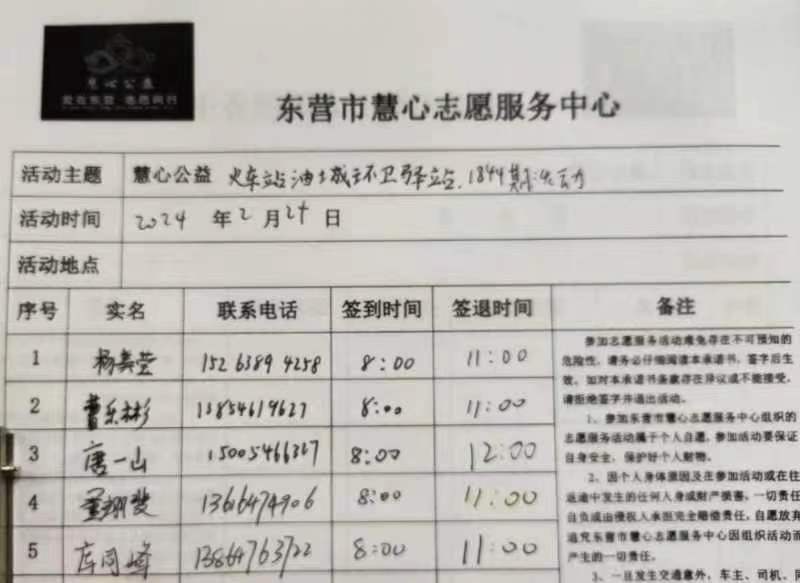 慧心公益
爱在东营 志愿同行
东营市慧心志愿服务中心
活动主题 慧心公益 火车站油城环卫驿站.1844期活动
活动时间 2024 年2月24日
活动地点
序号 实名 联系电话 签到时间 签退时间 备注
1 杨美莹 15263894258 8:00 11:00
2 曹乐彬 13854619627 8:00 11:00
3 唐一山 15005466367 8:00 12:00
4 13616474906 8:00 11:00
5 庄同峰 13864763722 8:00 11:00
参加志愿服务活动难免存在不可预知的
危险性，请务必仔细阅读本承诺书，签字后生
效。如对本承诺书条款存在异议或不能接受，
请拒绝签字并退出活动。
1、参加东营市慧心志愿服务中心组织的
志愿服务活动属于个人自愿，参加活动要保证
自身安全，保护好个人财物。
2、因个人身体原因及在参加活动或在往
返途中发生的任何人身或财产损害，一切责任
自负或由侵权人承担完全赔偿责任，自愿放弃
追究东营市慧心志愿服务中心因组织活动而
产生的一切责任。
3、一旦发生交通意外，车主、司机、同